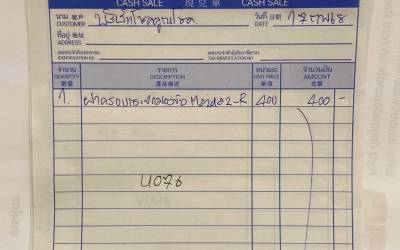 CASH SALE 現兌單 CASH SALE
นาม 客戶 บริษัทโชคคูณโชค วันที่ 日期 17 กพ 68
CUSTOMER
ที่อยู่ 地址
ADDRESS
เลขประจำตัวผู้เสียภาษี เลขประจำตัวผู้เสียภาษีอากร
IDENTIFICATION NO TAX IDENTIFICATION NO
จำนวน รายการ หน่วยละ จำนวนเงิน
QUANTITY DESCRIPTION UNIT PRICE AMOUNT
數量 產品描述 單價 金額
1. ฝาครอบกระจกมองข้าง Mazda2-R 400 400 -